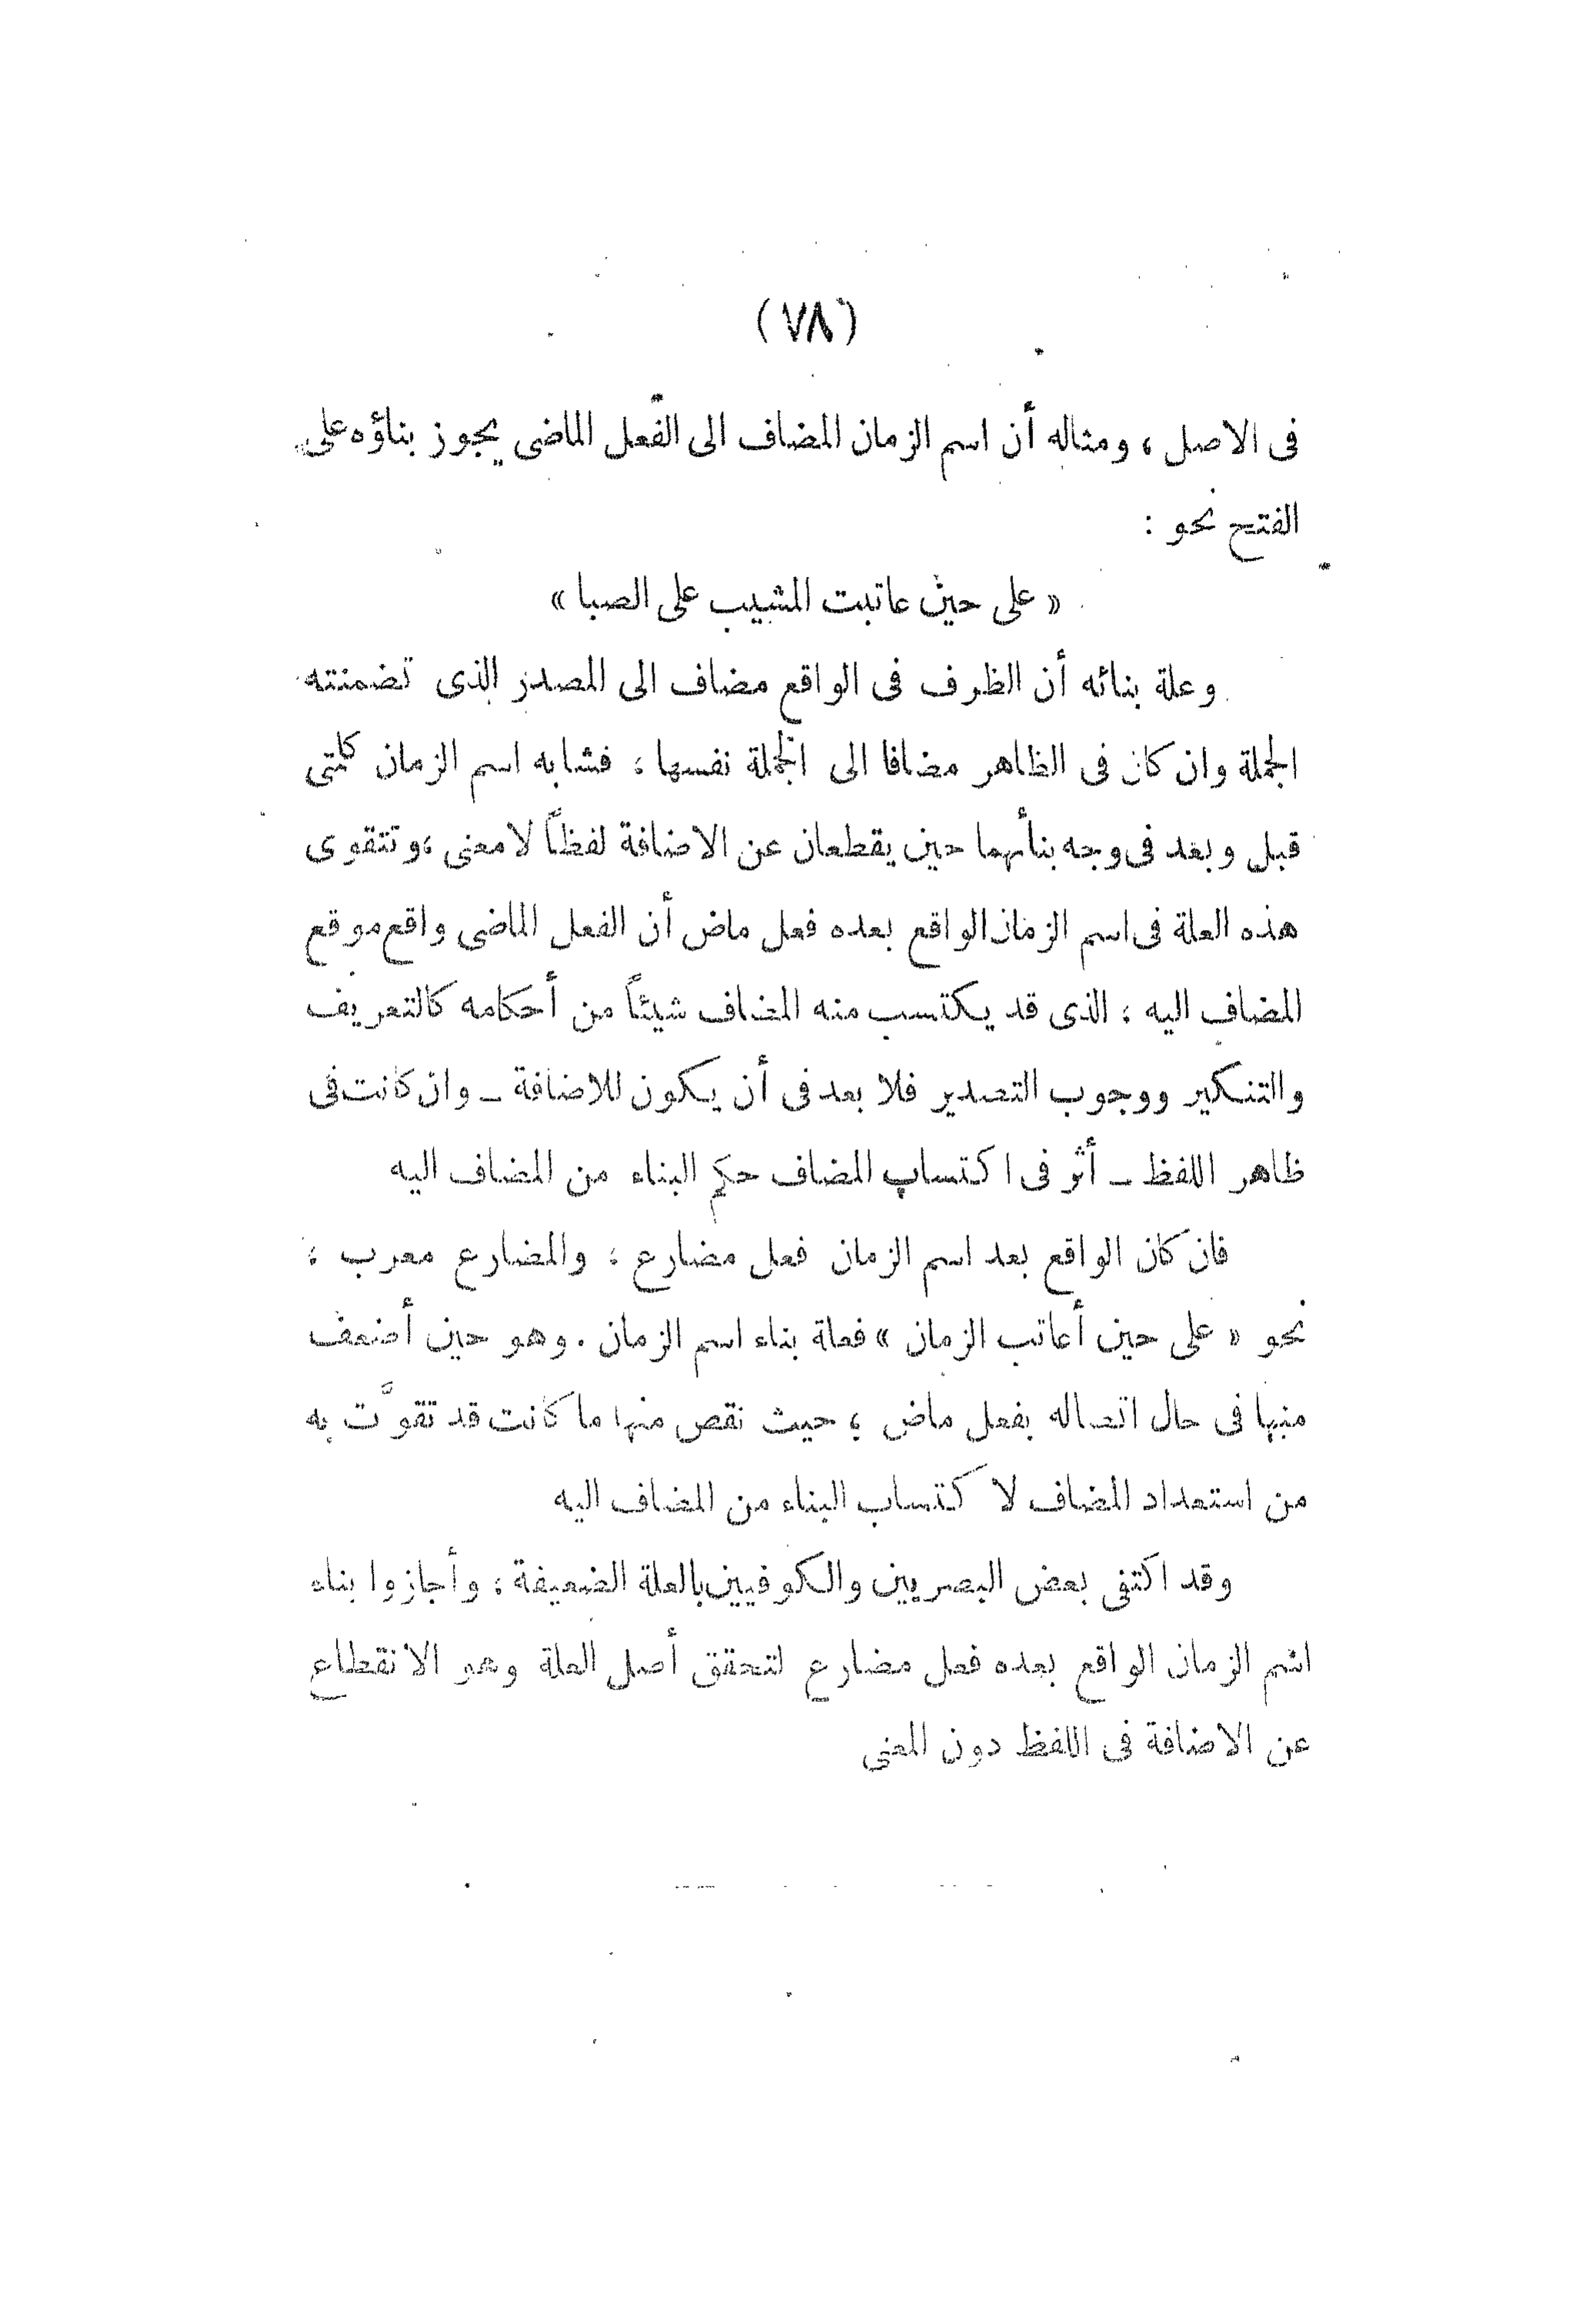 (٧٨)
فى الاصل ، ومثاله أن اسم الزمان المضاف الى الفعل الماضى يجوز بناؤه على
الفتح نحو :
« على حين عاتبت المشيب على الصبا »
وعلة بنائه أن الظرف فى الواقع مضاف الى المصدر الذى تضمنته
الجملة وان كان فى الظاهر مضافا الى الجملة نفسها ، فشابه اسم الزمان كلمتى
قبل وبعد فى وجه بنأئهما حين يقطعان عن الاضافة لفظاً لا معنى ، وتتقوى
هذه العلة فى اسم الزمان الواقع بعده فعل ماض أن الفعل الماضى واقع موقع
المضاف اليه ، الذى قد يكتسب منه المضاف شيئاً من أحكامه كالتعريف
والتنكير ووجوب التصدير فلا بعد فى أن يكون للاضافة ــ وان كانت فى
ظاهر اللفظ ــ أثر فى اكتساب المضاف حكم البناء من المضاف اليه
فان كان الواقع بعد اسم الزمان فعل مضارع ، والمضارع معرب ،
نحو « على حين أعاتب الزمان » فعلة بناء اسم الزمان . وهو حين أضعف
منها فى حال اتصاله بفعل ماض ، حيث نقص منها ما كانت قد تقوَّت به
من استعداد المضاف لا كتساب البناء من المضاف اليه
وقد اكتفى بعض البصريين والكوفيين بالعلة الضعيفة ، وأجازوا بناء
اسم الزمان الواقع بعده فعل مضارع لتحقق أصل العلة وهو الانقطاع
عن الاضافة فى اللفظ دون المعنى